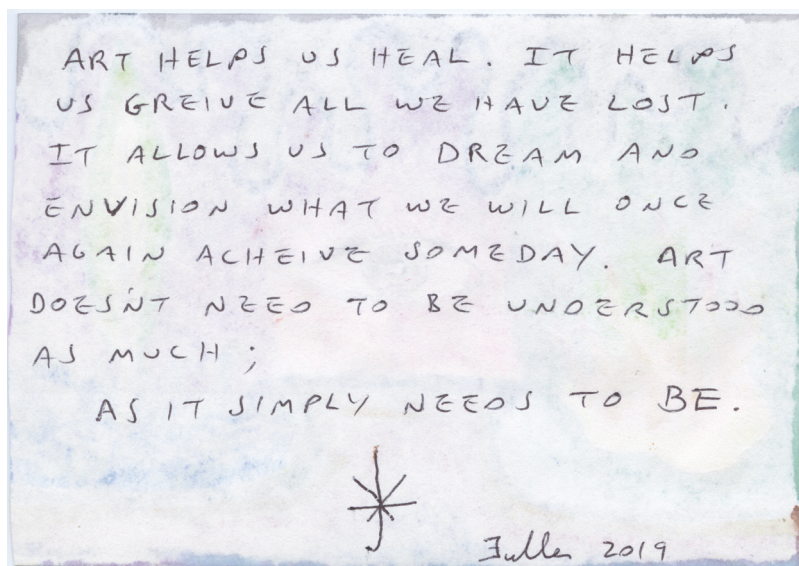 ART HELPS US HEAL. IT HELPS
US GREIVE ALL WE HAVE LOST.
IT ALLOWS US TO DREAM AND
ENVISION WHAT WE WILL ONCE
AGAIN ACHEIVE SOMEDAY. ART
DOESN'T NEED TO BE UNDERSTOOD
AS MUCH;
AS IT SIMPLY NEEDS TO BE.
Fuller 2019